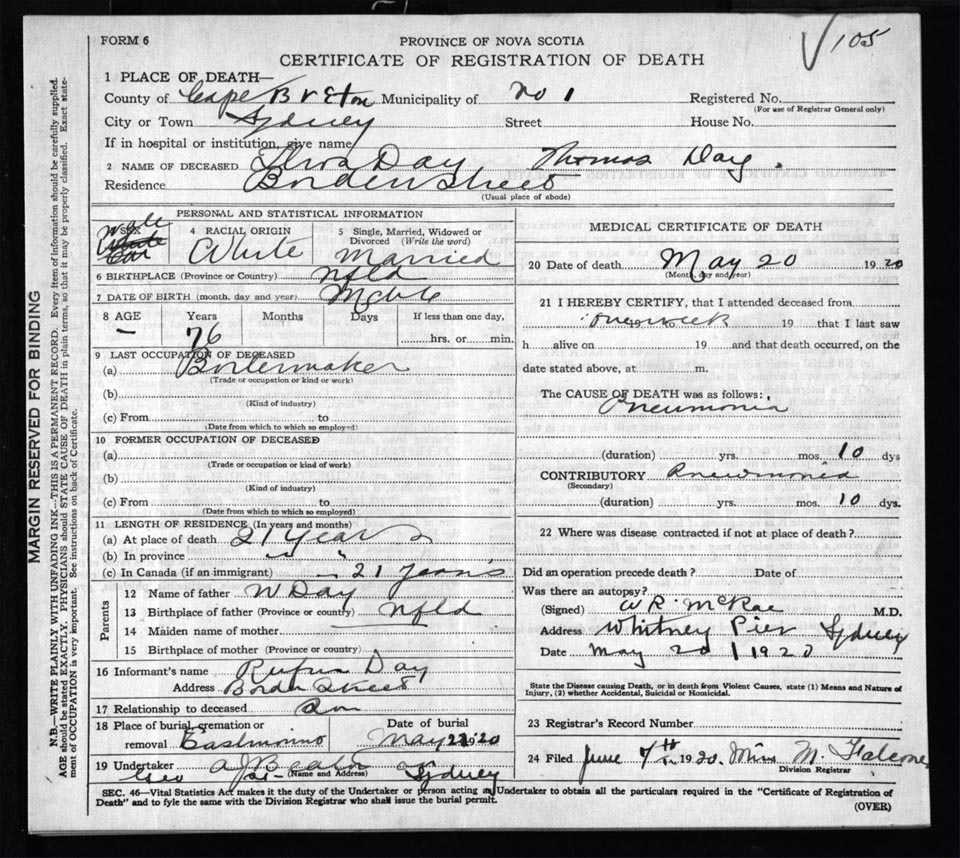 105
FORM 6
PROVINCE OF NOVA SCOTIA
CERTIFICATE OF REGISTRATION OF DEATH
MARGIN RESERVED FOR BINDING
N.B.—WRITE PLAINLY WITH UNFADING INK—THIS IS A PERMANENT RECORD. Every item of information should be carefully supplied.
AGE should be stated EXACTLY. PHYSICIANS should STATE CAUSE OF DEATH in plain terms, so that it may be properly classified. Exact state-
ment of OCCUPATION is very important. See instructions on back of Certificate.
1 PLACE OF DEATH—
County of Cape Breton Municipality of No 1 Registered No.
(For use of Registrar General only)
City or Town Sydney Street House No.
If in hospital or institution, give name
2 NAME OF DECEASED Thos Day Thomas Day.
Residence Borden Street
(Usual place of abode)
PERSONAL AND STATISTICAL INFORMATION
3 SEX Male
4 RACIAL ORIGIN White
5 Single, Married, Widowed or
Divorced (Write the word)
Married
6 BIRTHPLACE (Province or Country) Nfld
7 DATE OF BIRTH (month. day and year)
8 AGE Years Months Days If less than one day,
– 76 hrs. or min.
9 LAST OCCUPATION OF DECEASED
(a) Boilermaker
(Trade or occupation or kind or work)
(b)
(Kind of industry)
(c) From to
(Date from which to which so employed)
10 FORMER OCCUPATION OF DECEASED
(a)
(Trade or occupation or kind of work)
(b)
(Kind of industry)
(c) From to
(Date from which to which so employed)
11 LENGTH OF RESIDENCE (In years and months)
(a) At place of death 21 Years
(b) In province " "
(c) In Canada (if an immigrant) 21 Years
Parents
12 Name of father W Day
13 Birthplace of father (Province or country) Nfld
14 Maiden name of mother
15 Birthplace of mother (Province or country)
16 Informant's name Rufus Day
Address Borden Street
17 Relationship to deceased Son
18 Place of burial, cremation or
removal
Date of burial
May 22 1920
19 Undertaker
(Name and Address) Sydney
MEDICAL CERTIFICATE OF DEATH
20 Date of death May 20 1920
(Month, day and year)
21 I HEREBY CERTIFY, that I attended deceased from
one week 19 that I last saw
h alive on 19 and that death occurred, on the
date stated above, at m.
The CAUSE OF DEATH was as follows:
Pneumonia
(duration) yrs. mos. 10 dys
CONTRIBUTORY Pneumonia
(Secondary)
(duration) yrs. mos. 10 dys.
22 Where was disease contracted if not at place of death?
Did an operation precede death? Date of
Was there an autopsy?
(Signed) W R McRae M.D.
Address Whitney Pier Sydney
Date May 20 1920
State the Disease causing Death, or in death from Violent Causes, state (1) Means and Nature of
Injury, (2) whether Accidental, Suicidal or Homicidal.
23 Registrar's Record Number
24 Filed June 7th 1920. Miss M.
Division Registrar
SEC. 46—Vital Statistics Act makes it the duty of the Undertaker or person acting as Undertaker to obtain all the particulars required in the "Certificate of Registration of
Death" and to fyle the same with the Division Registrar who shall issue the burial permit.
(OVER)